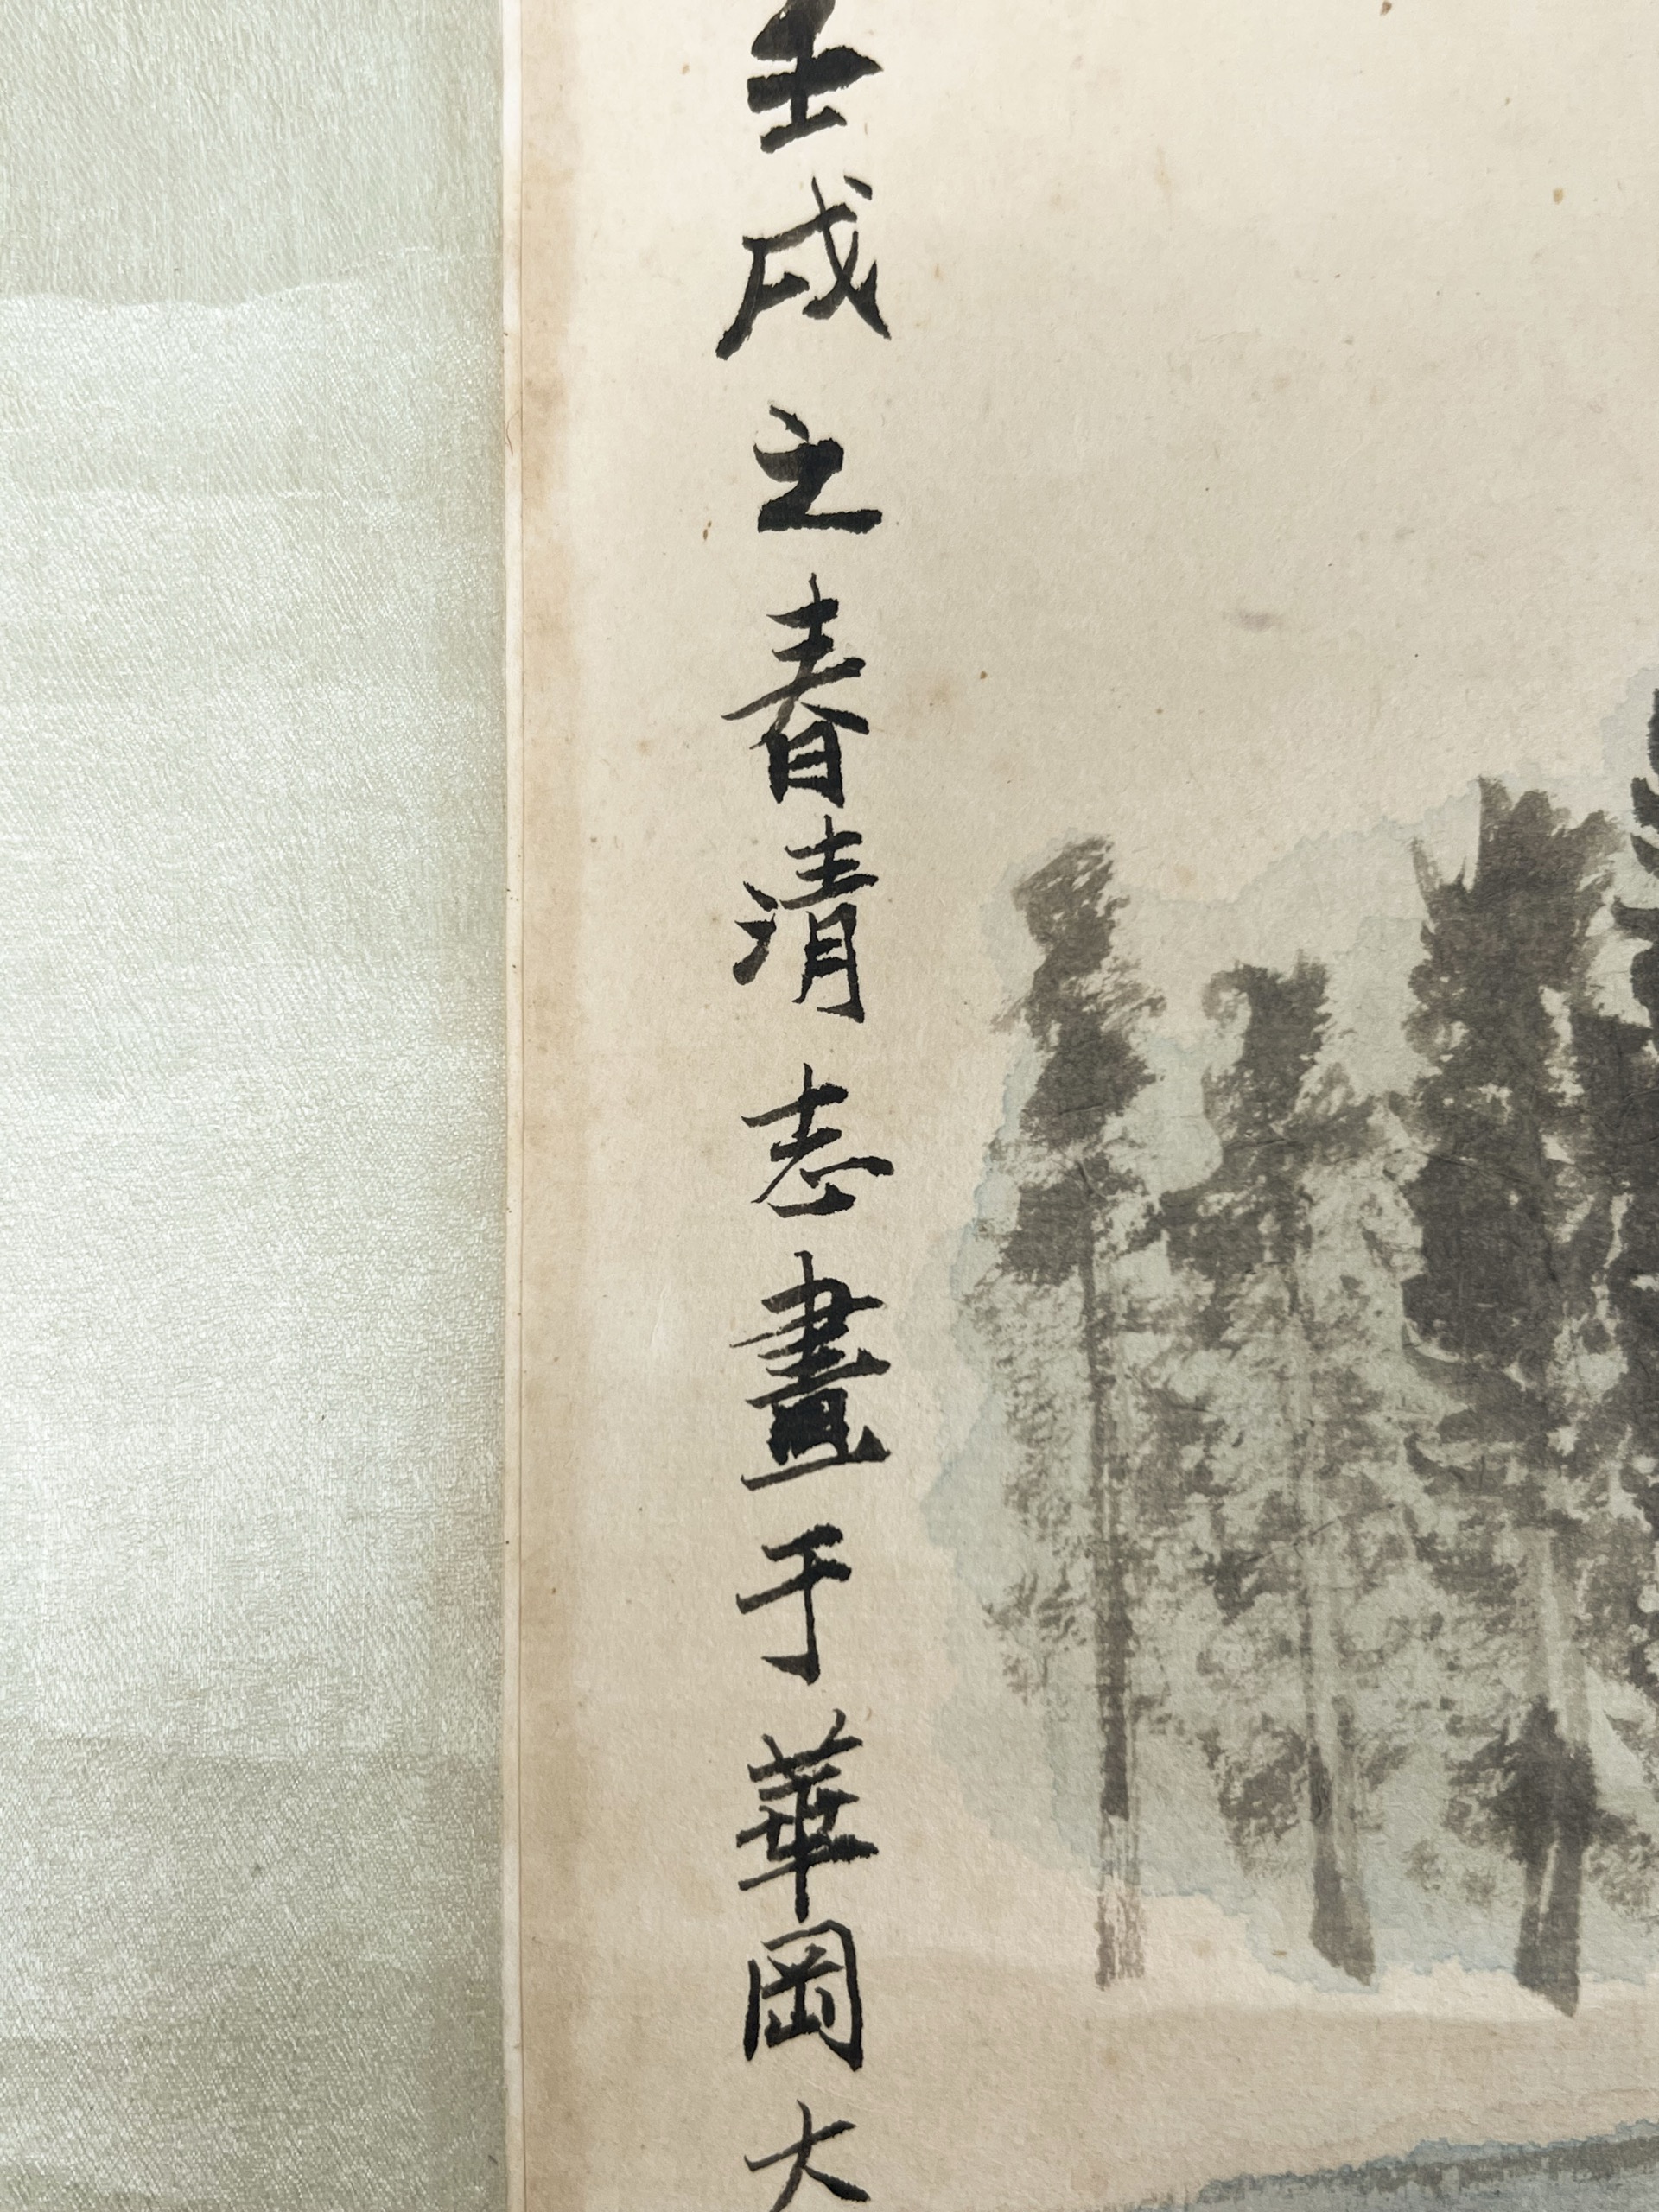 壬戌之春清志畫于華岡大